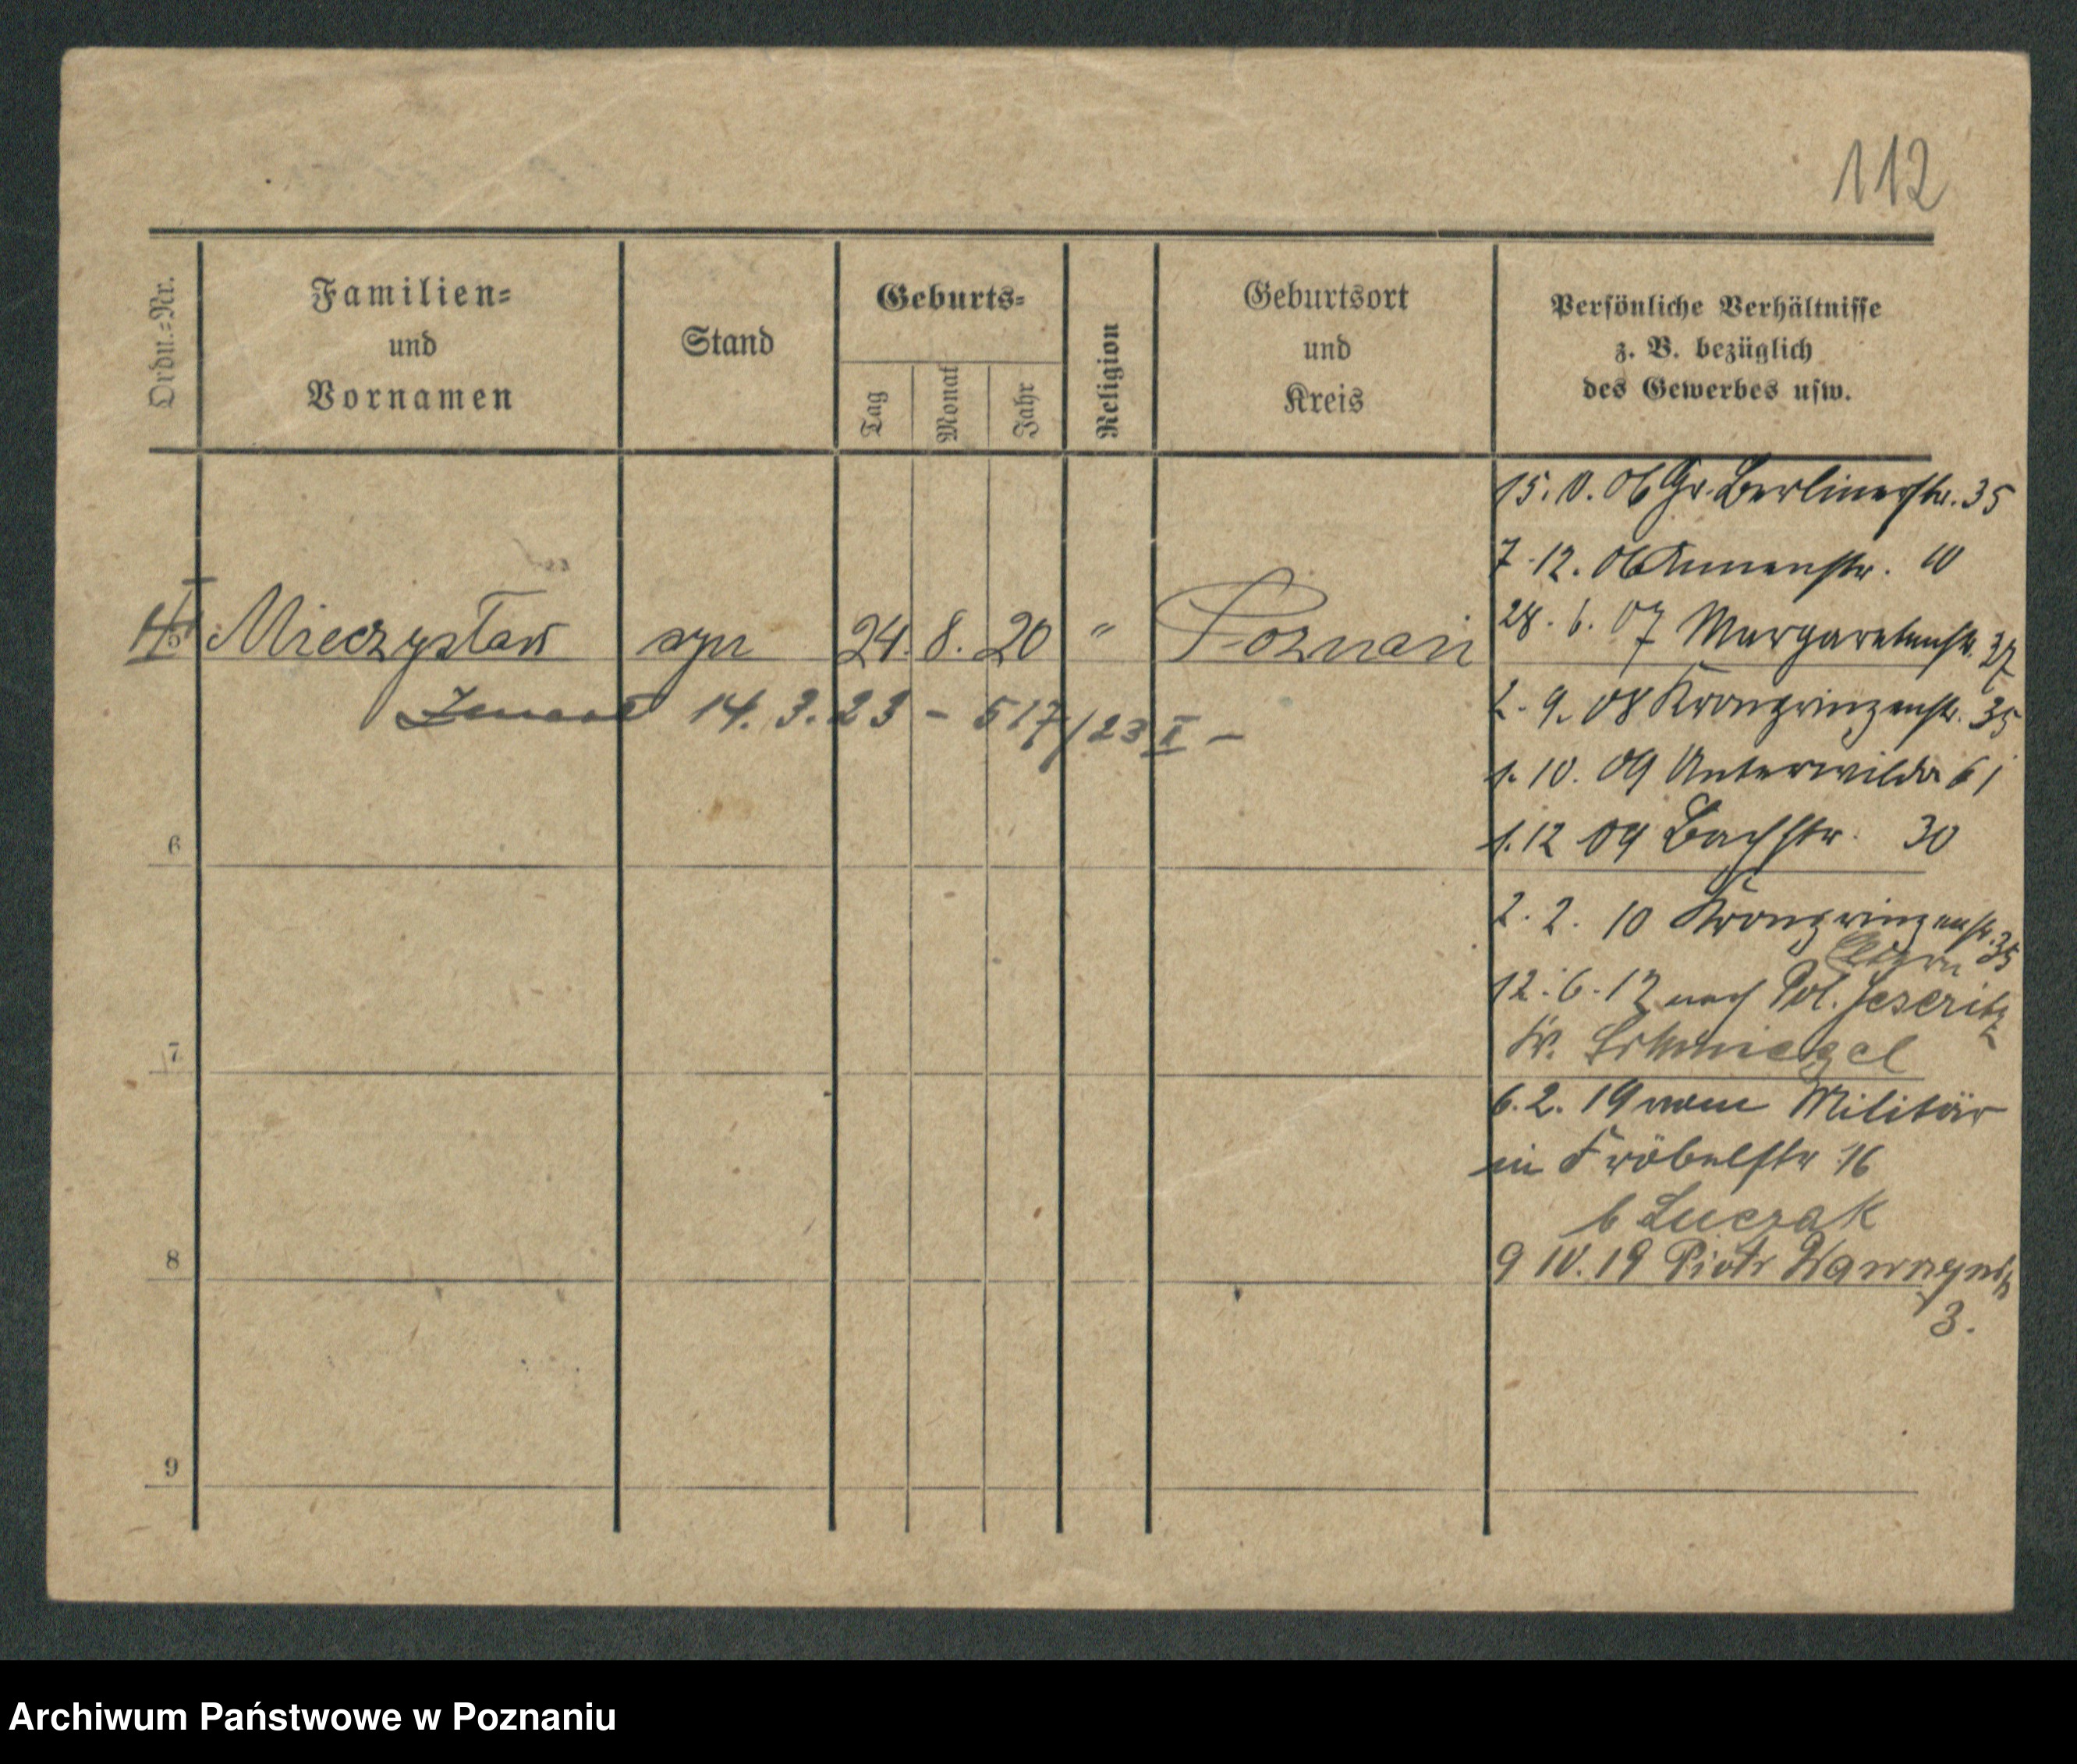 112
Ordn.-Nr.
Familien-
und
Vornamen
Stand
Geburts-
Tag
Monat
Jahr
Religion
Geburtsort
und
Kreis
Persönliche Verhältnisse
z. B. bezüglich
des Gewerbes usw.
15. 10. 06 Gr. Berlinerstr. 35
7. 12. 06 Annenstr. 10
28. 6. 07 Margaretenstr. 37
Mieczysław syn 24. 8. 20 " Poznań
2. 9. 08 Kronprinzenstr. 35
14. 3. 23 - 517/23 I -
1. 10. 09 Unterwilda 61
1. 12 09 Bachstr. 30
6
2. 2. 10 Kronprinzenstr. 35
12. 6. 17 nach Pol. Jeseritz
Kr. Schmiegel
7
6. 2. 19 vom Militär
in Fröbelstr 16
b Luczak
8
9 10. 19 Piotr Wawrzyniak
3.
9
Archiwum Państwowe w Poznaniu